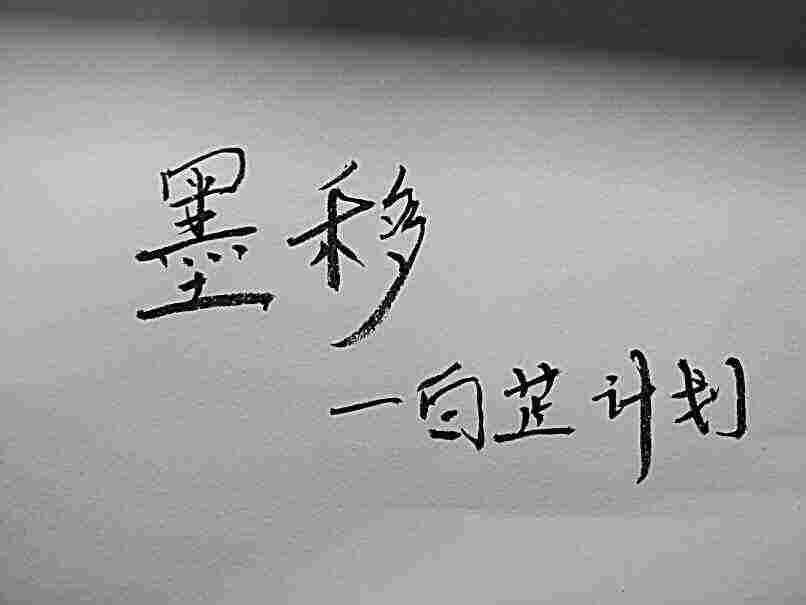 墨移
一白芷计划